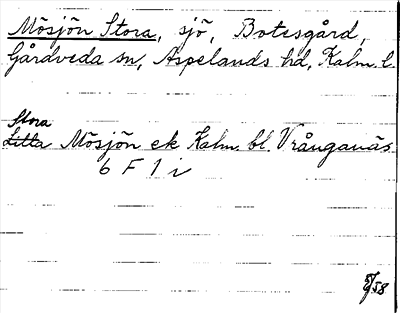 Mösjön Stora, sjö, Botesgård,
Gårdveda sn, Aspelands hd, Kalm. l.
Stora
Litla Mösjön ek Kalm. bl. Vrånganäs
6 F 1 i
58